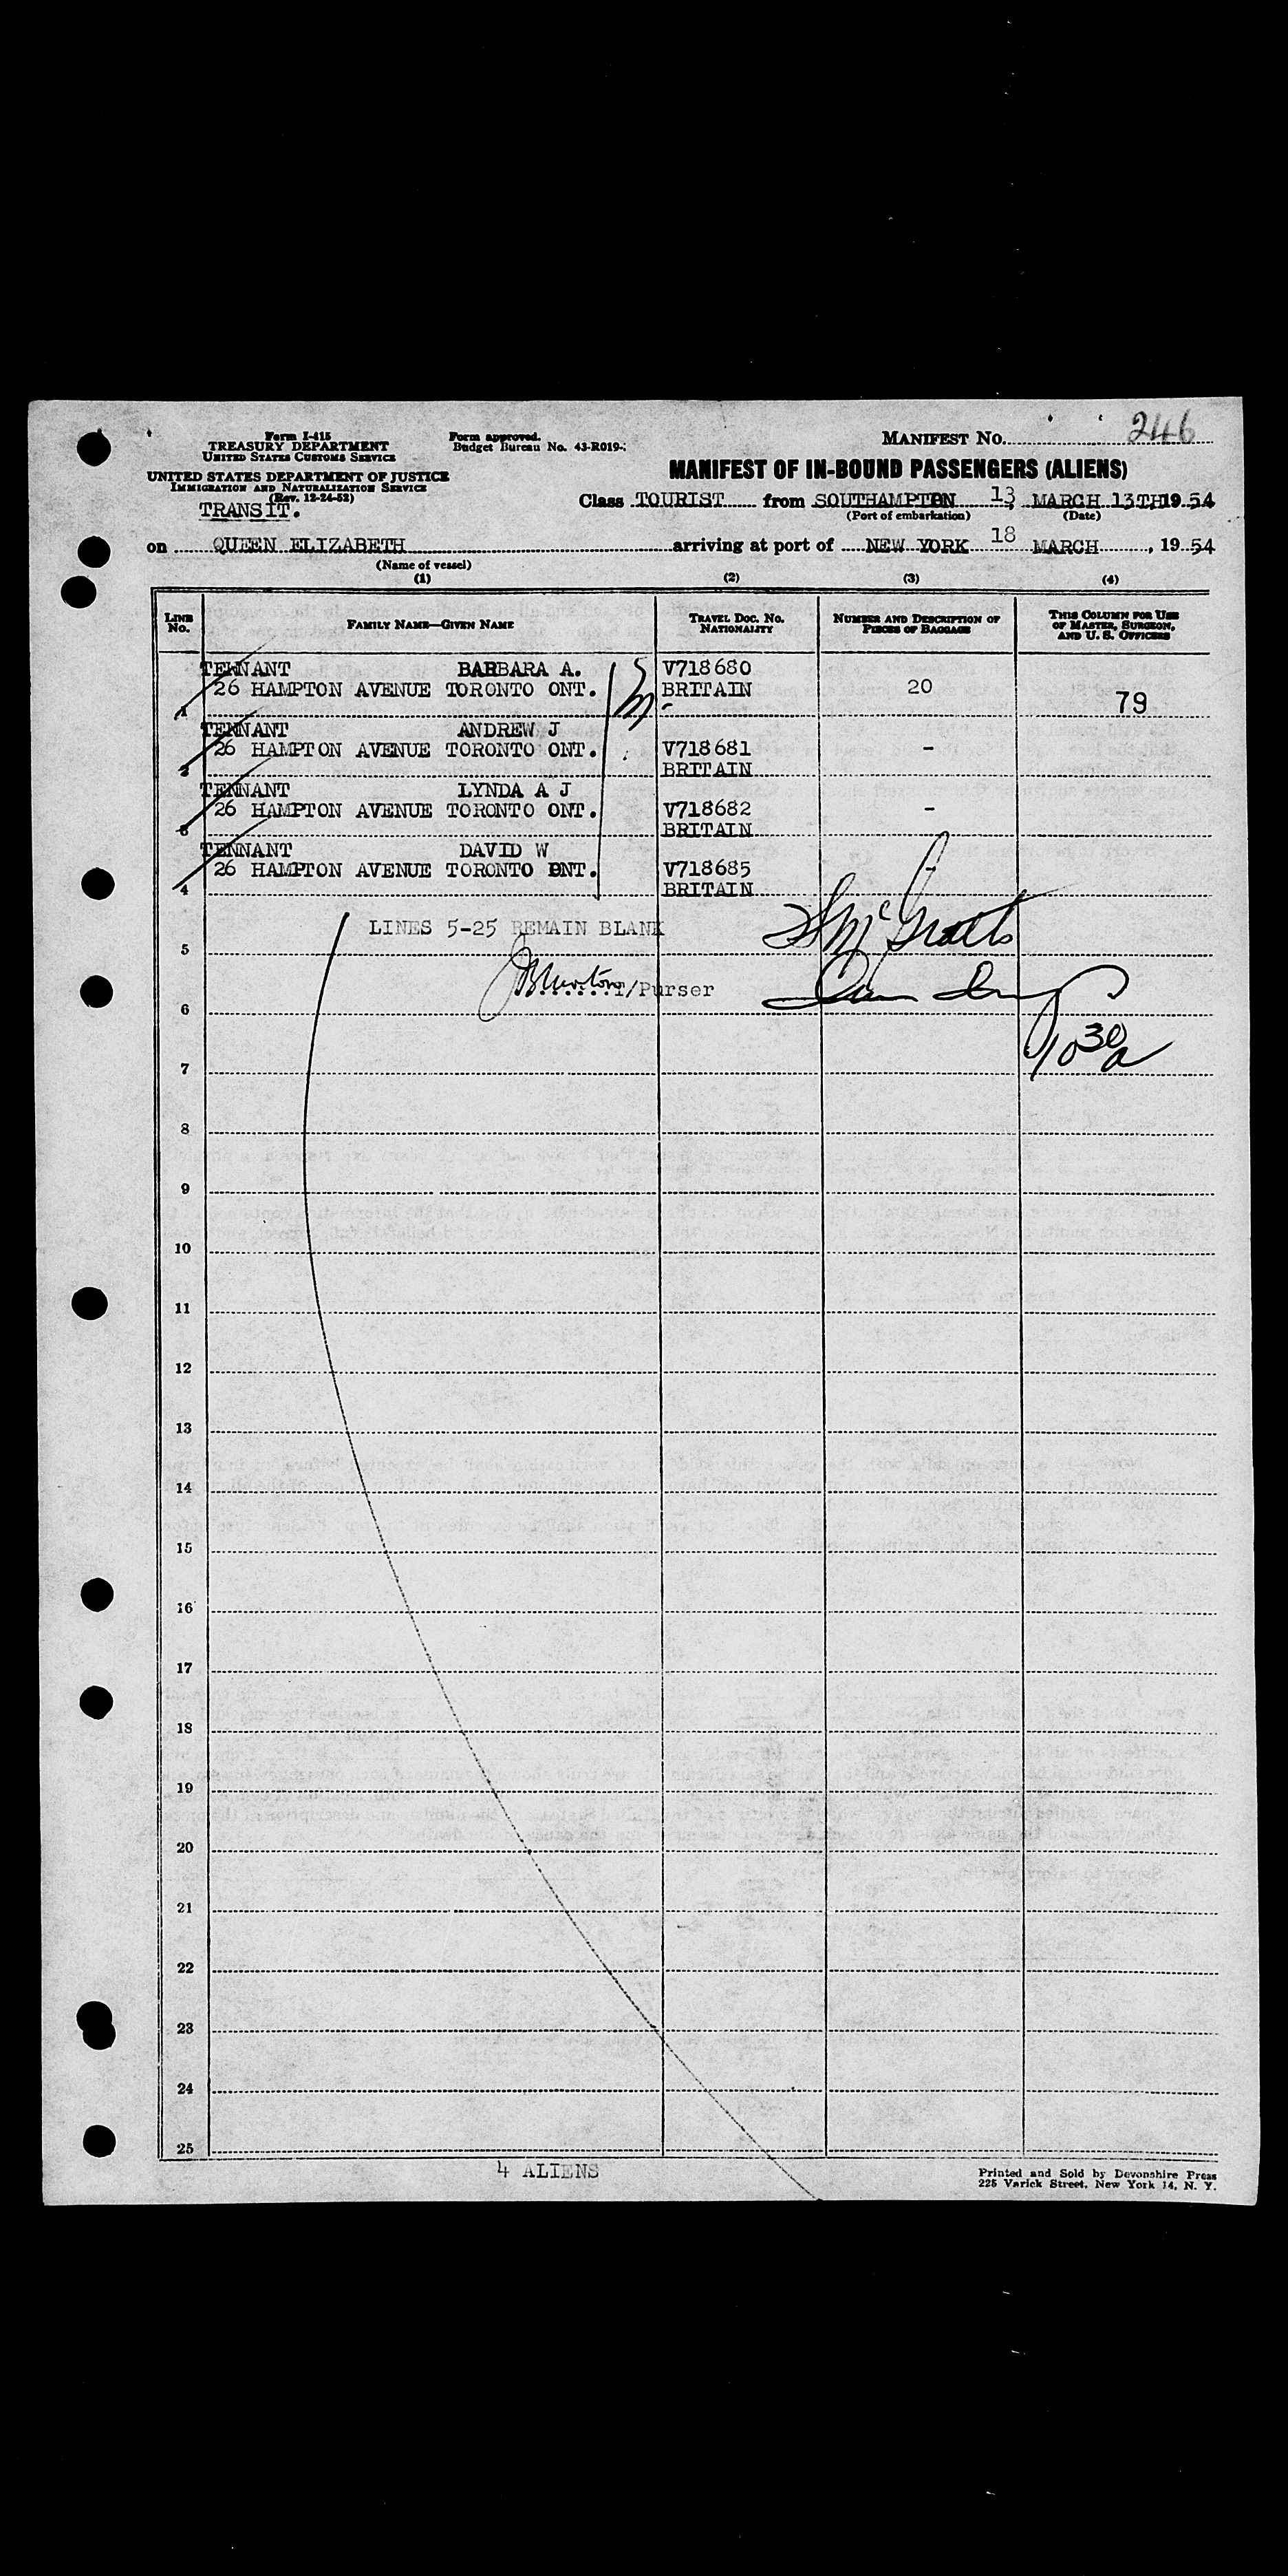 Form I-415
TREASURY DEPARTMENT
UNITED STATES CUSTOMS SERVICE
UNITED STATES DEPARTMENT OF JUSTICE
IMMIGRATION AND NATURALIZATION SERVICE
(Rev. 12-24-52)
TRANSIT.
Form approved.
Budget Bureau No. 43-R019-
MANIFEST NO. 246
MANIFEST OF IN-BOUND PASSENGERS (ALIENS)
Class TOURIST from SOUTHAMPTON 13, MARCH 13TH 19 54
(Port of embarkation) (Date)
on QUEEN ELIZABETH arriving at port of NEW YORK 18 MARCH, 19 54
(Name of vessel)
(1) (2) (3) (4)
LINE NO. FAMILY NAME—GIVEN NAME TRAVEL DOC. NO. NATIONALITY NUMBER AND DESCRIPTION OF PIECES OF BAGGAGE THIS COLUMN FOR USE OF MASTER, SURGEON, AND U. S. OFFICERS
TENNANT BARBARA A. V718680
26 HAMPTON AVENUE TORONTO ONT. BRITAIN 20
1 79
TENNANT ANDREW J
26 HAMPTON AVENUE TORONTO ONT. V718681 -
2 BRITAIN
TENNANT LYNDA A J
26 HAMPTON AVENUE TORONTO ONT. V718682 -
3 BRITAIN
TENNANT DAVID W
26 HAMPTON AVENUE TORONTO ONT. V718685 -
4 BRITAIN
LINES 5-25 REMAIN BLANK
5
/Purser
6
10 30 a
7
8
9
10
11
12
13
14
15
16
17
18
19
20
21
22
23
24
25
4 ALIENS
Printed and Sold by Devonshire Press
225 Varick Street, New York 14, N. Y.